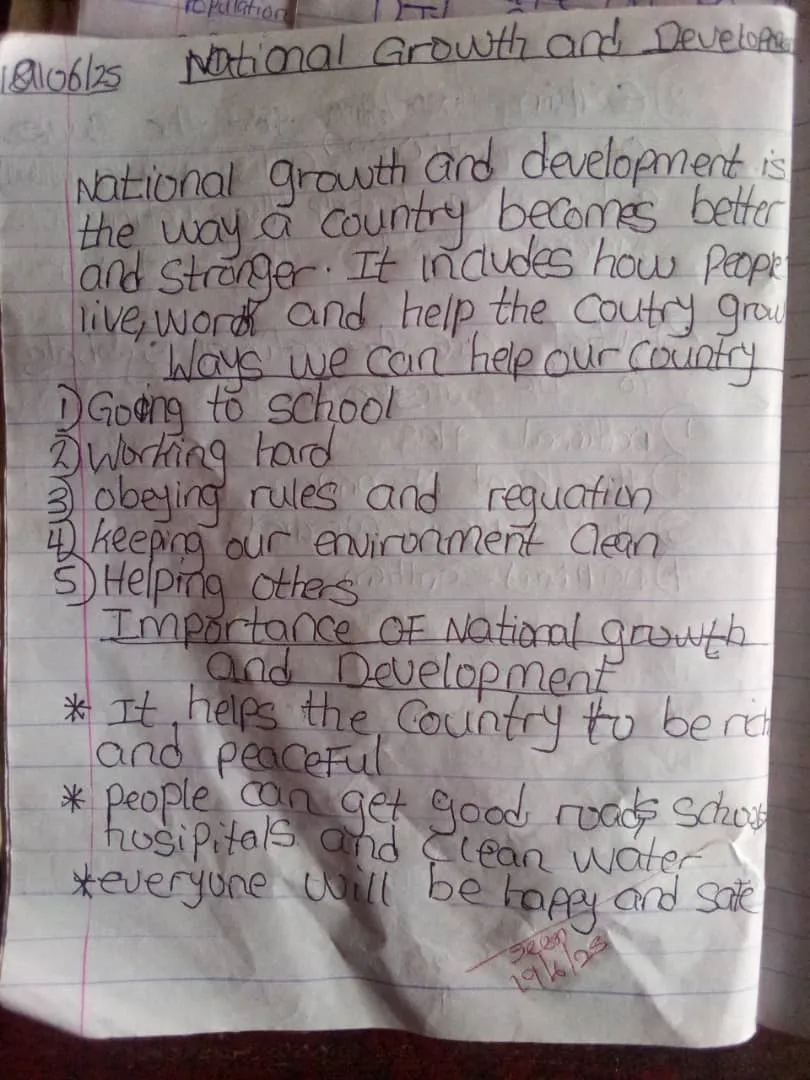 Population
18/06/25 National Growth and Develop
National growth and development is
the way a country becomes better
and stronger. It includes how People
live, work and help the Coutry grow
Ways we can help our Country
1) Going to school
2) Working hard
3) obeying rules and reguation
4) keeping our environment Clean
5) Helping others
Importance OF National growth
and Development
* It helps the Country to be rich
and peaceful
* people can get good roads School
husipitals and Clean water
* everyone will be happy and safe
seen
19/6/25